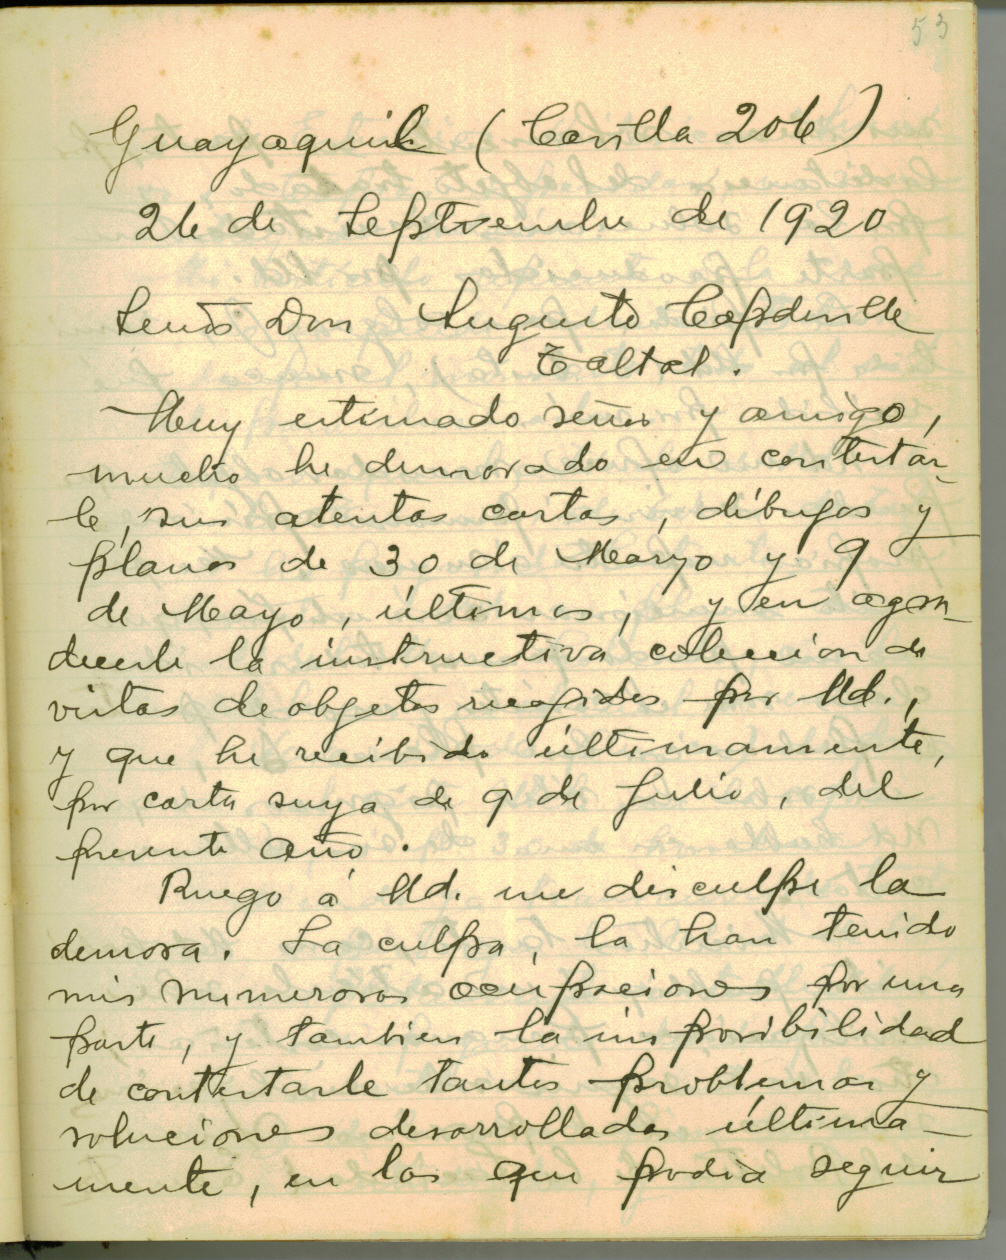 53
Guayaquil (Casilla 206)
26 de Septiembre de 1920
Señor Don Augusto Capdeville
Taltal.
Muy estimado señor y amigo,
mucho he demorado en contestar-
le, sus atentas cartas, dibujos y
planos de 30 de Marzo y 9
de Mayo, últimos, y en agra-
decerle la instructiva coleccion de
vistas de objetos recogidos por Ud.,
y que he recibido últimamente,
por carta suya de 9 de Julio, del
presente año.
Ruego á Ud. me disculpe la
demora. La culpa, la han tenido
mis numerosas ocupaciones por una
parte, y tambien la imposibilidad
de contestarle tantos problemas y
soluciones desarrollados última-
mente, en los que podia seguir